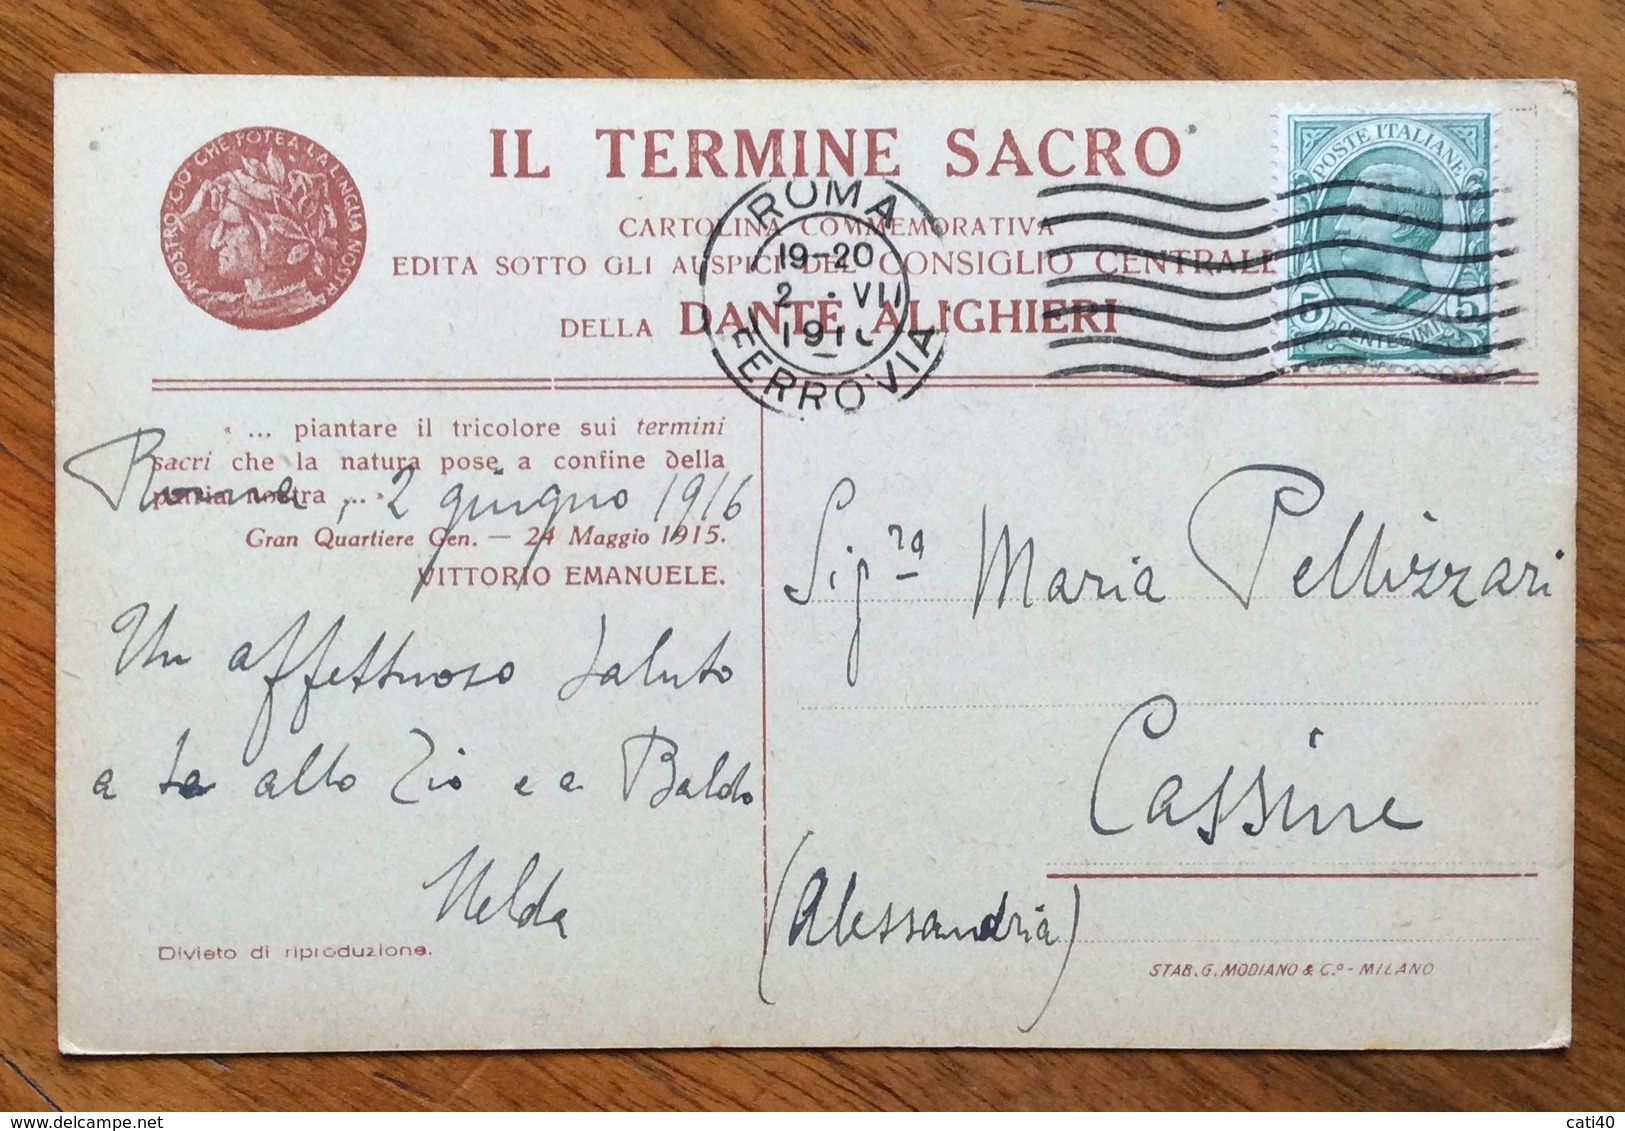 MOSTRO CIÒ CHE POTEA LA LINGUA NOSTRA
IL TERMINE SACRO
CARTOLINA COMMEMORATIVA
EDITA SOTTO GLI AUSPICI DEL CONSIGLIO CENTRALE
DELLA DANTE ALIGHIERI
ROMA
19-20
2 . VII
FERROVIA
POSTE ITALIANE
5 CENTESIMI 5
« ... piantare il tricolore sui termini
sacri che la natura pose a confine della
patria nostra ... »
Gran Quartiere Gen. — 24 Maggio 1915.
VITTORIO EMANUELE.
Roma, 2 giugno 1916
Un affettuoso saluto
a te allo Zio e a Baldo
Nelda
Sig.ra Maria Pellizzari
Cassine
(Alessandria)
Divieto di riproduzione.
STAB. G. MODIANO & C.º - MILANO
cati40